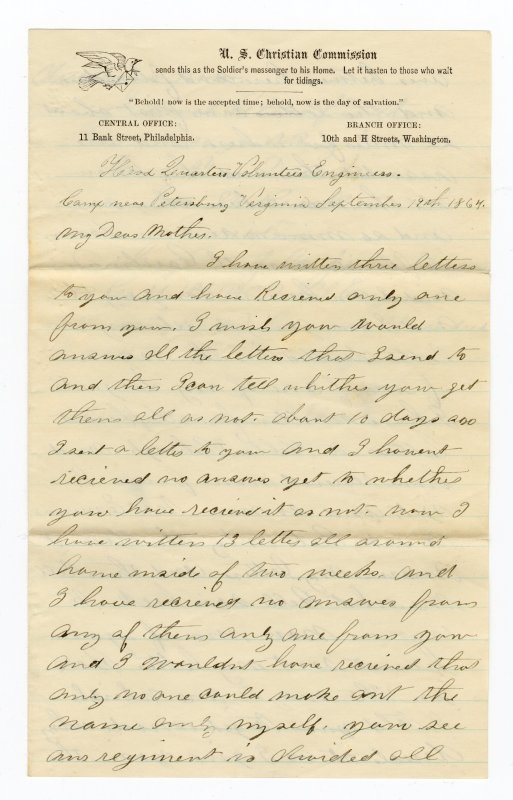 U. S. Christian Commission
sends this as the Soldier's messenger to his Home. Let it hasten to those who wait
for tidings.
"Behold! now is the accepted time; behold, now is the day of salvation."
CENTRAL OFFICE:
11 Bank Street, Philadelphia.
BRANCH OFFICE:
10th and H Streets, Washington.
Head Quarters Volunteer Engineers.
Camp near Petersburg Virginia September 19th 1864.
My Dear Mother.
I have written three letters
to you and have Recieved only one
from you. I wish you would
answer all the letters that I send to
and then I can tell whither you get
them all or not. about 10 days ago
I sent a letter to you and I havent
recieved no answer yet to whether
you have recieved it or not. now I
have written 13 letter all around
home inside of two weeks. and
I have recieved no answer from
any of them only one from you
and I wouldnt have recieved that
only no one could make out the
name only myself. you see
our regiment is divided all